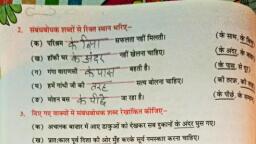 2. संबंधबोधक शब्दों से रिक्त स्थान भरिए–
(क) परिश्रम के बिना सफलता नहीं मिलती। (के साथ, के
(ख) हॉकी घर के अंदर नहीं खेलना चाहिए। (के अंदर, के
(ग) गंगा वाराणसी के पास बहती है। (के पास, से दूर)
(घ) हमें गांधी जी की तरह सत्य बोलना चाहिए। (की तरह, की
(ङ) मोहन बस के पीछे जा रहा है। (के पीछे, के
3. दिए गए वाक्यों में संबंधबोधक शब्द रेखांकित कीजिए–
(क) अचानक बाजार में आए डाकुओं को देखकर सब दुकानों के अंदर घुस गए।
(ख) प्रातःकाल पूर्व दिशा की ओर मुँह करके सूर्य नमस्कार करना चाहिए।